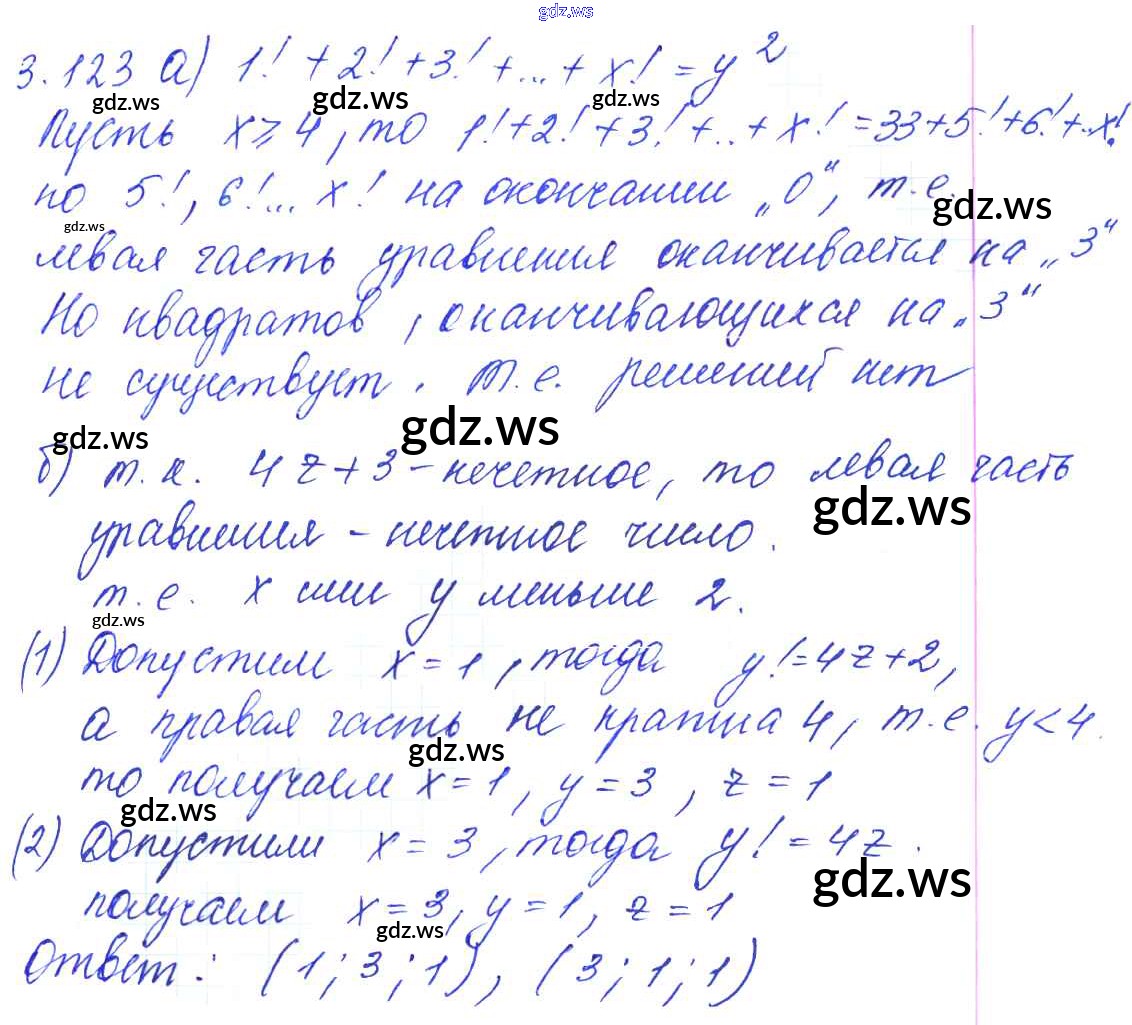 gdz.ws
3.123 а) 1! + 2! + 3! + ... + x! = y²
gdz.ws gdz.ws gdz.ws
Пусть x ≥ 4, то 1! + 2! + 3! + .. + x! = 33 + 5! + 6! + .. x!
но 5!, 6! ... x! на окончании „0“, т.е.
gdz.ws gdz.ws
левая часть уравнения оканчивается на „3“
Но квадратов, оканчивающихся на „3“
не существует. Т.е. решений нет
gdz.ws gdz.ws
б) т.к. 4z + 3 - нечетное, то левая часть
gdz.ws
уравнения - нечетное число.
т.е. x или y меньше 2.
gdz.ws
(1) Допустим x = 1, тогда y! = 4z + 2,
а правая часть не кратна 4, т.е. y < 4.
gdz.ws
то получаем x = 1, y = 3, z = 1
gdz.ws
(2) Допустили x = 3, тогда y! = 4z.
gdz.ws
получаем x = 3, y = 1, z = 1
gdz.ws
Ответ: (1; 3; 1), (3; 1; 1)